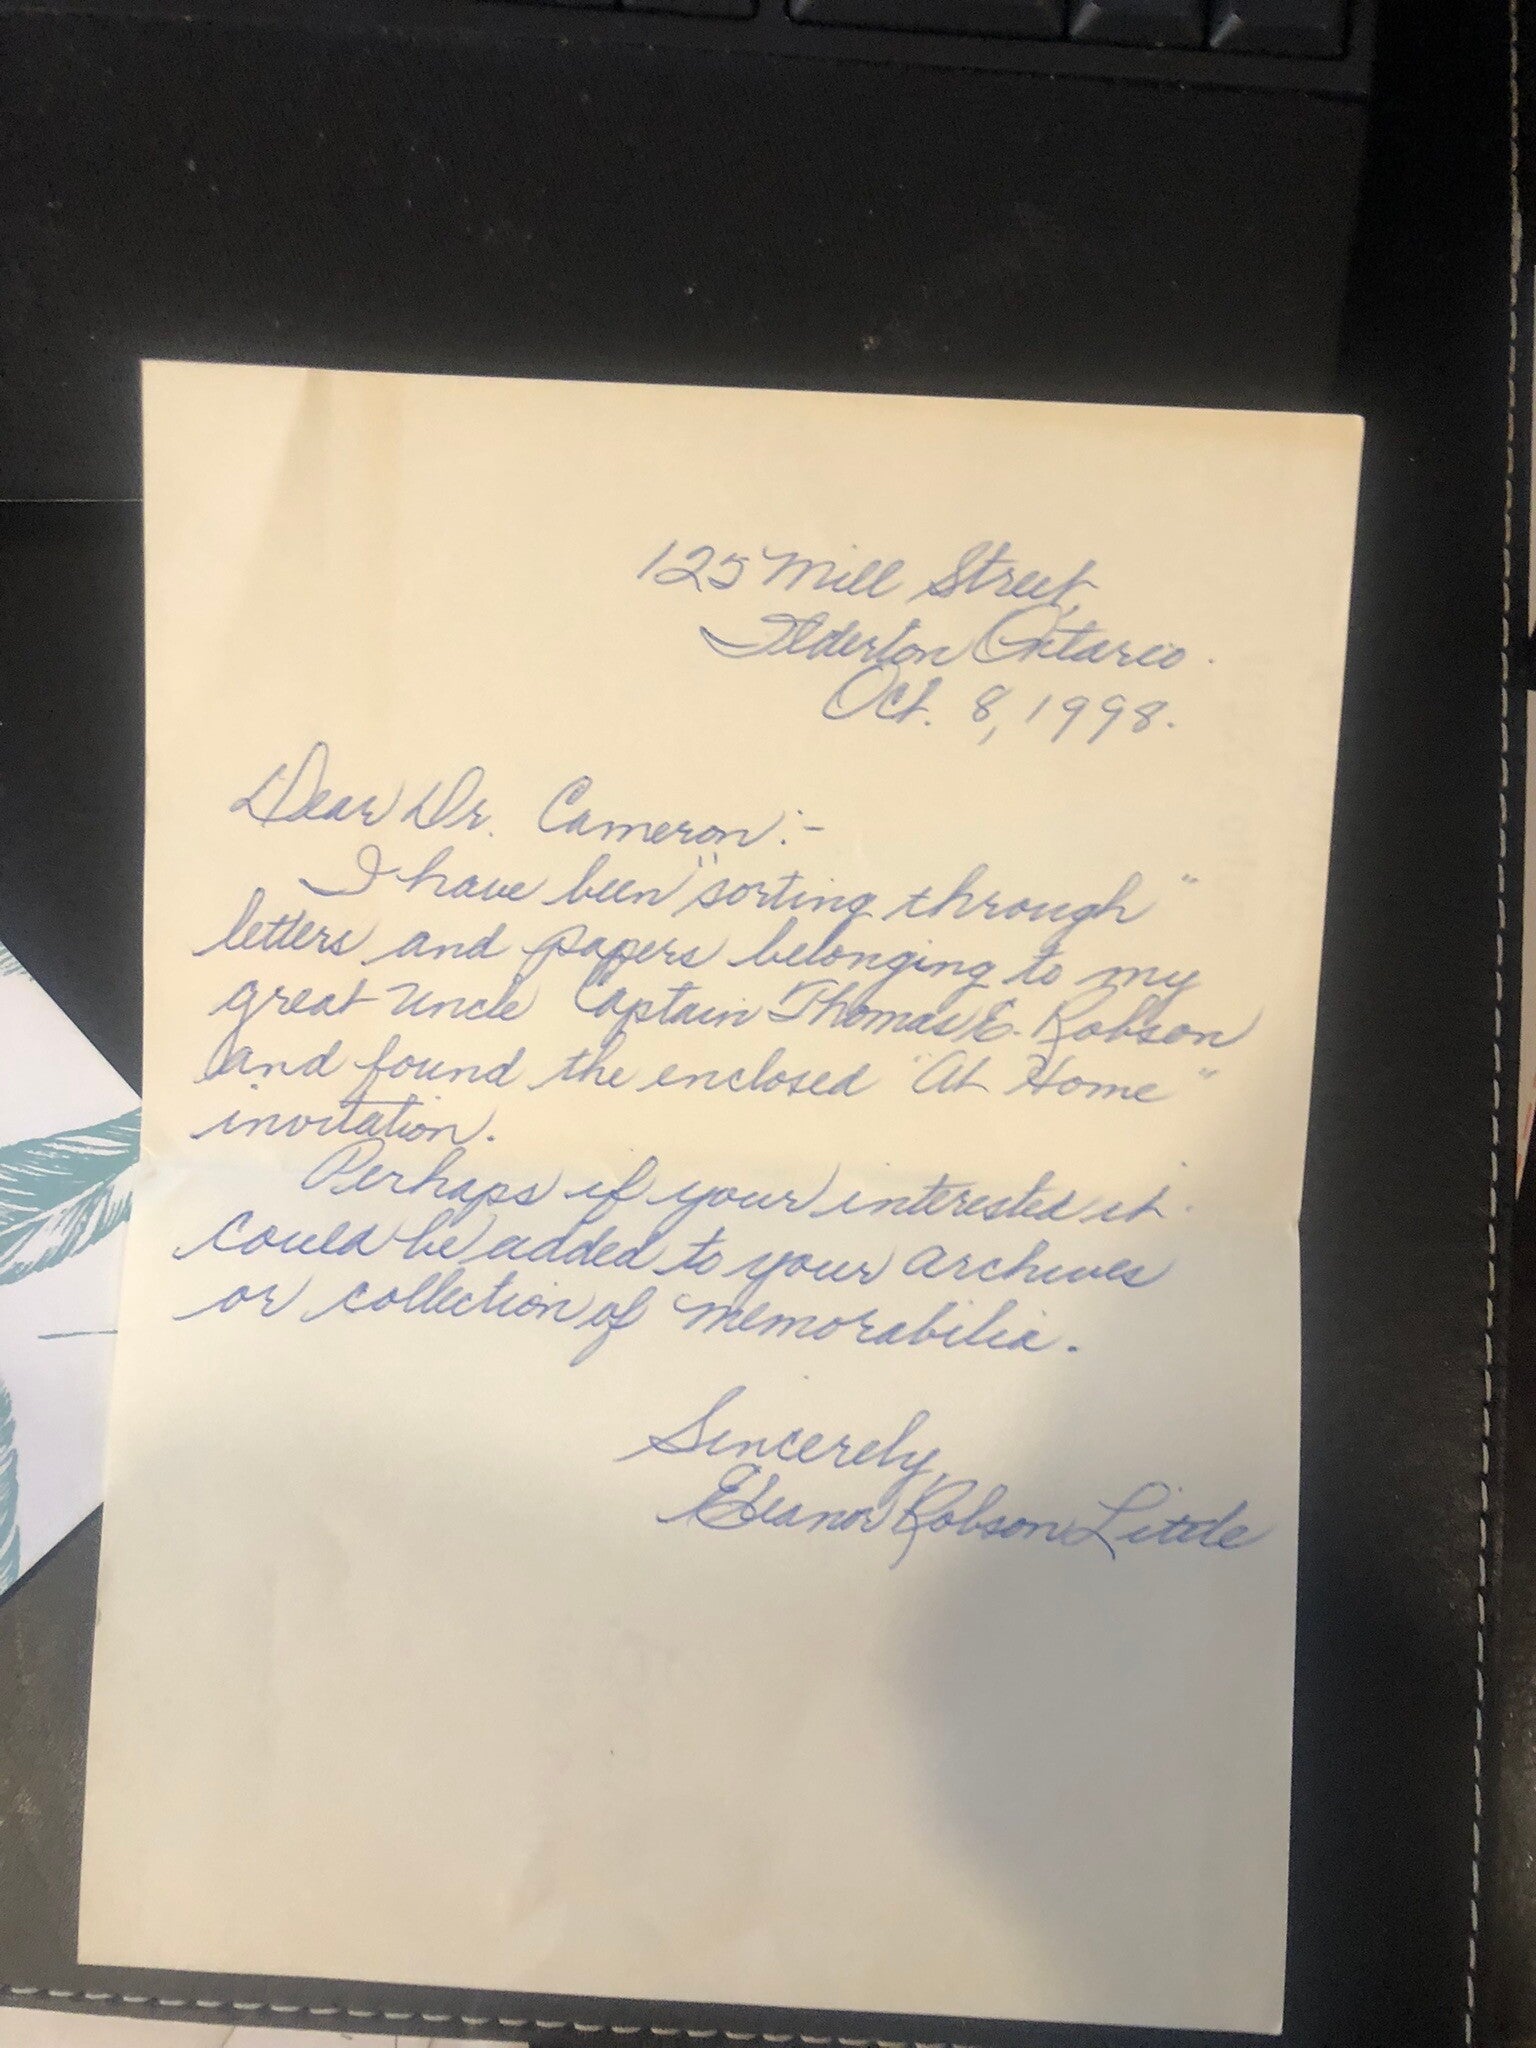 125 Mill Street,
Ilderton Ontario.
Oct. 8, 1998.
Dear Dr. Cameron:-
I have been "sorting through"
letters and papers belonging to my
great uncle Captain Thomas E. Robson
and found the enclosed "At Home"
invitation.
Perhaps if your interested it
could be added to your archives
or collection of memorabilia.
Sincerely,
Eleanor Robson Little